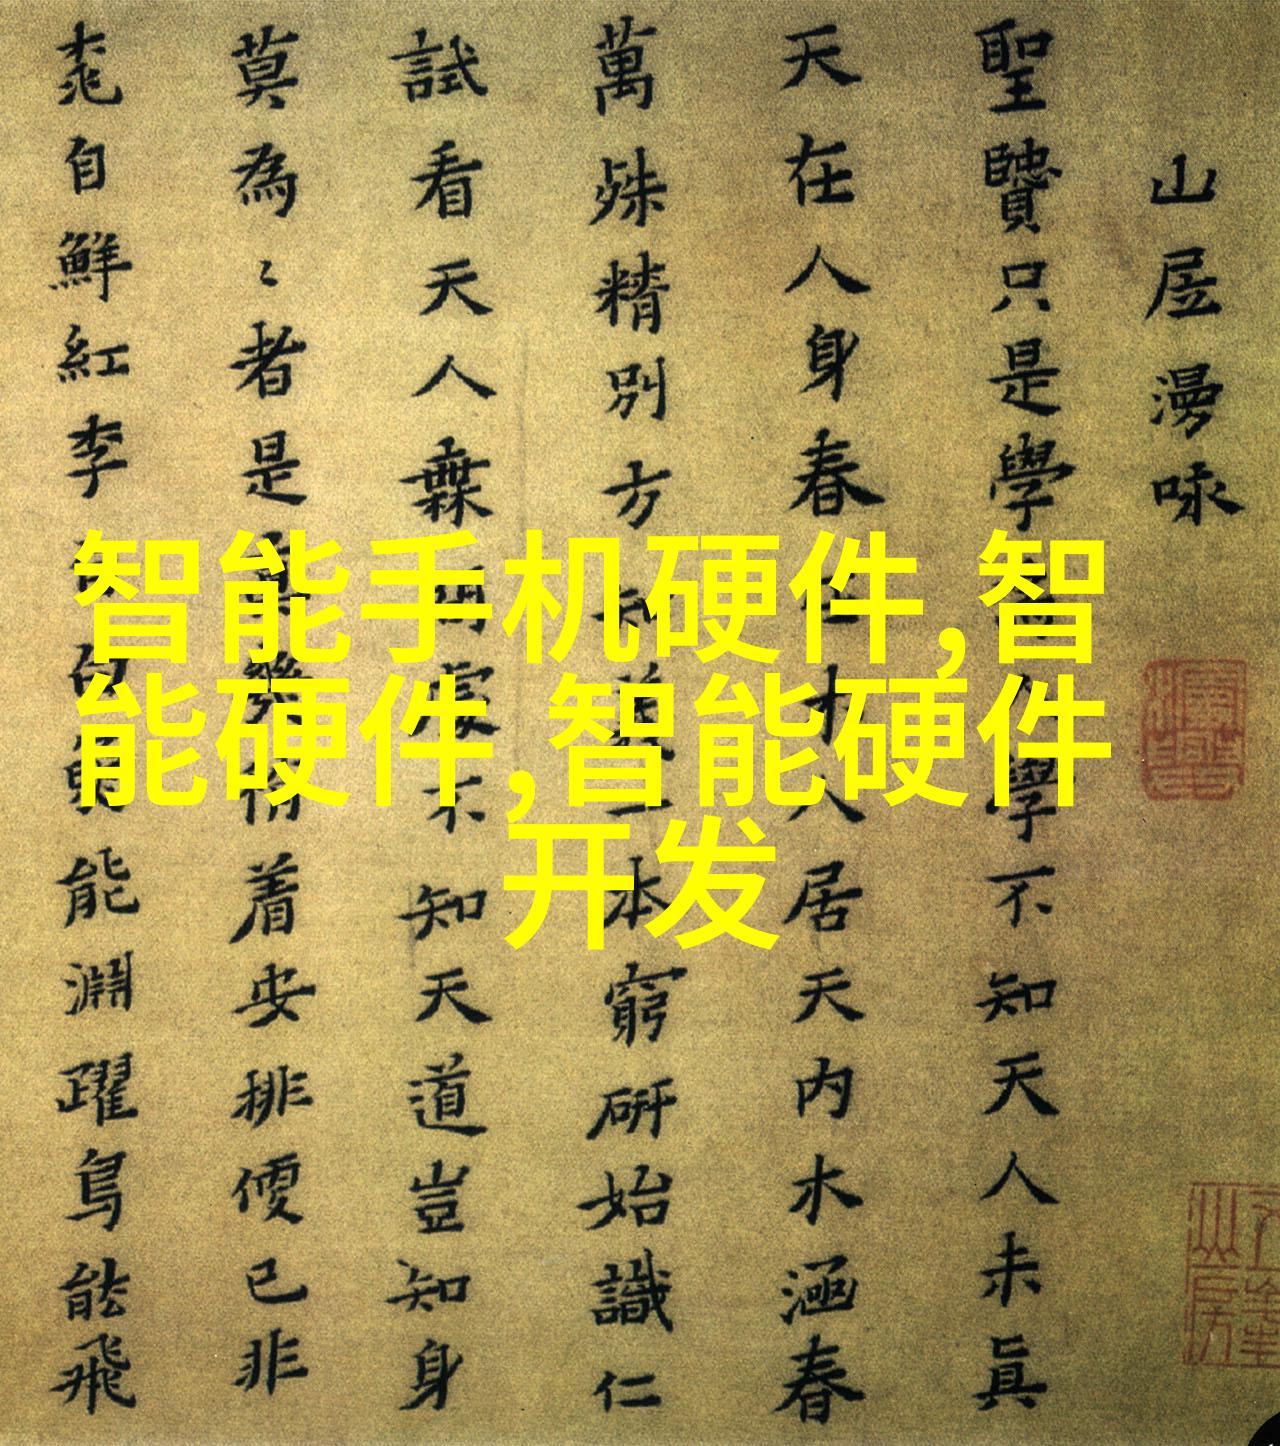 山居漫咏
聖賢只是學人學不知天人未眞
天在人身春在木人居天内木涵春
萬殊精別方知一本窮研始識仁
試看天人無間處不知天道豈知身
莫為〻者是真幾着安排便已非
桃自鮮紅李自白魚能淵躍鳥能飛
智能手机硬件,智
能硬件,智能硬件
开发